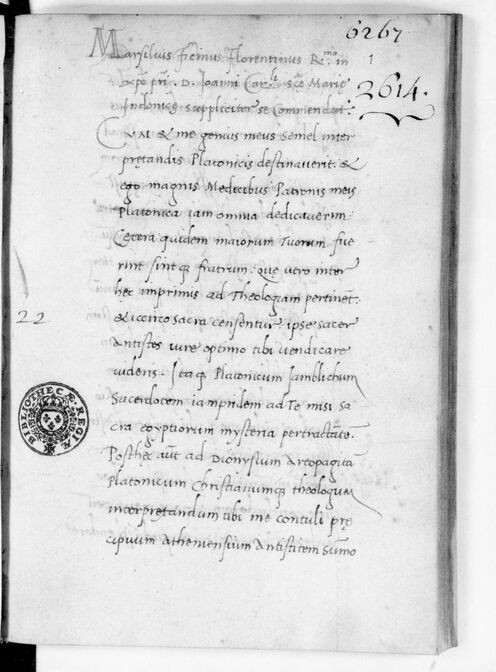 6267
Marsilius Ficinus Florentinus R.mo in
1
xpo pri . D. Ioanni Car.li scę Marię
2614.
In donicę suppliciter se Commendat.
CVM & me genius meus semel inter
pretandis Platonicis destinaverit. &
ego magnis Medicibus Patronis meis
Platonica iam omnia dedicaverim:
Cetera quidem maiorum Tuorum fue
rint sintq fratrum: Quę vero inter
hec imprimis ad Theologiam pertinent.
& iccirco sacra censentur ipse sacer
Antistes iure optimo tibi vendicare
videris. Itaq Platonicum Iamblichum
22
Sacerdotem iampridem ad Te misi Sa
cra egyptiorum mysteria pertractate.
BIBLIOTHECÆ REGIÆ
Posthec aut ad Dionysium Areopagita
Platonicum Christianumq theologum
interpretandum tibi me contuli prę
cipuum Atheniensium Antistitem Summo